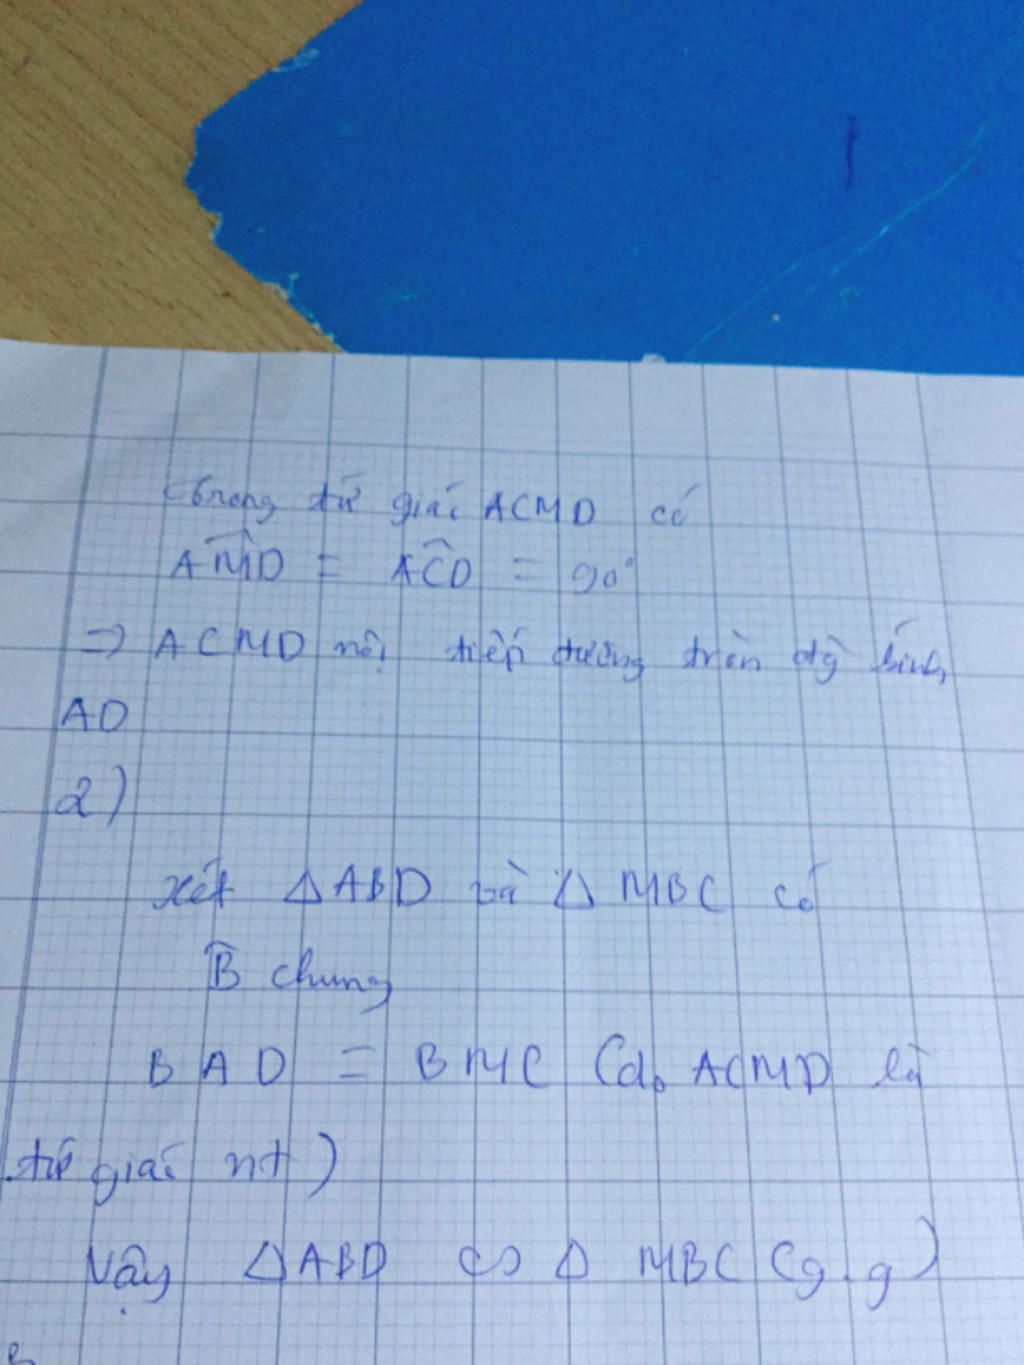 trong tứ giác ACMD có
AMD = ACD = 90°
=> ACMD nội tiếp đường tròn đg kính
AD
2)
xét △ABD và △ MBC có
B chung
BAD = BMC (do ACMD là
tứ giác nt)
Vậy △ABD ∽ △ MBC (g.g)